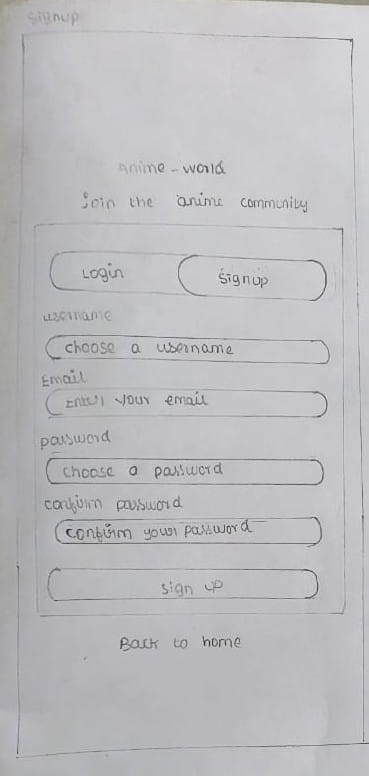 signup
anime-world
Join the anime community
Login signup
username
choose a username
Email
Enter your email
password
choose a password
confirm password
confirm your password
sign up
Back to home